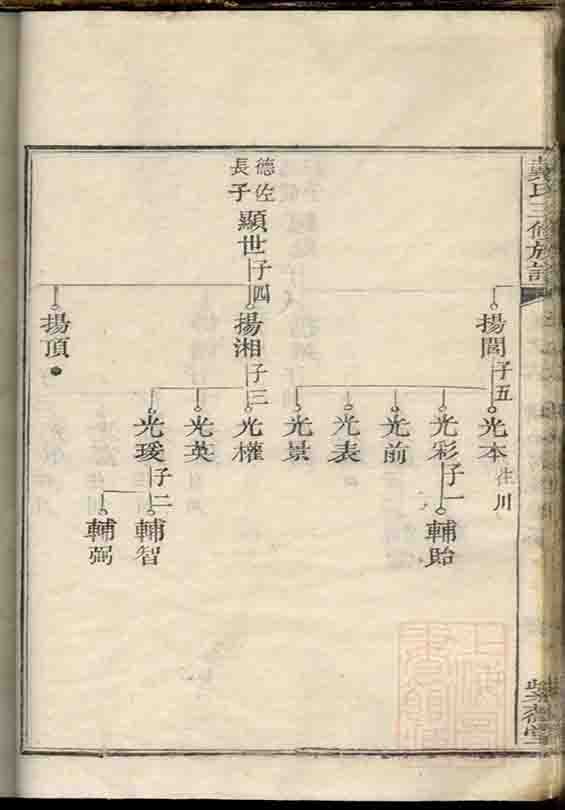 氏三修族譜
德佐
長子
顯世
子四
揚閭
子五
揚湘
子三
揚頂
光本
往川
光彩
子一
光前
光表
光景
光權
光英
光瑗
子二
輔貽
輔智
輔弼